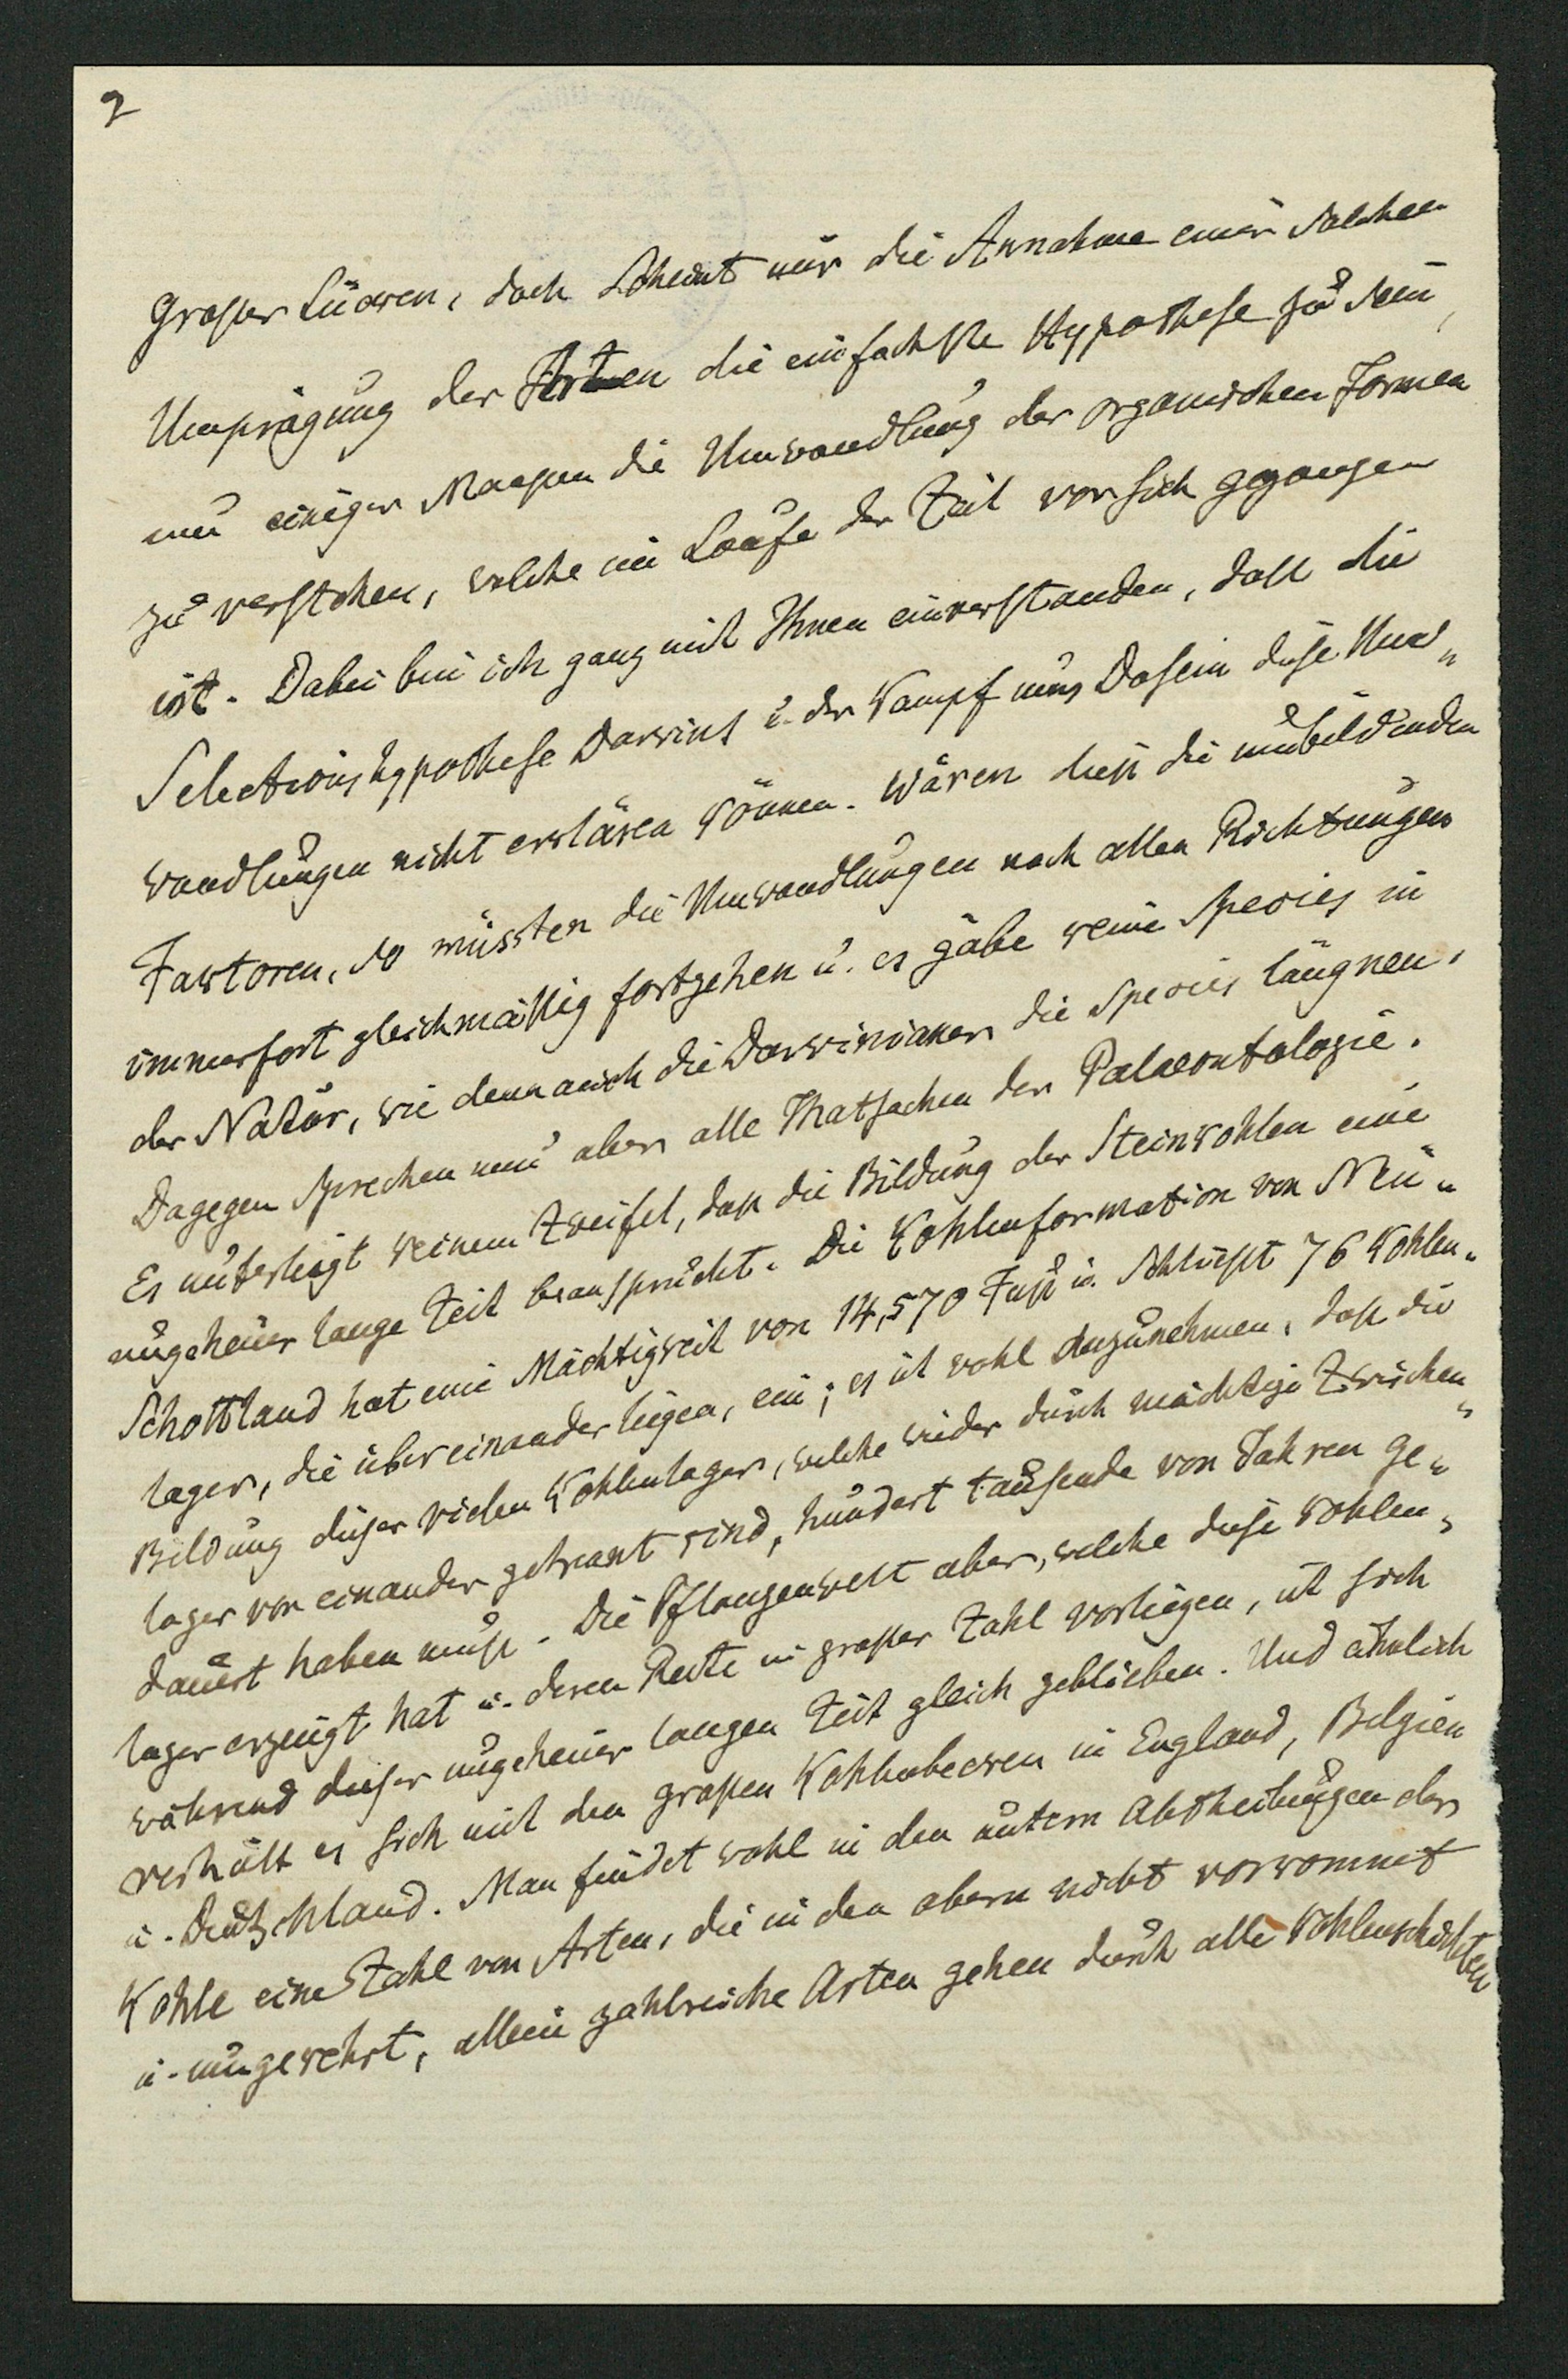 2
großer Lücken, doch scheint mir die Annahme einer solchen
Umprägung der Arten die einfachste Hypothese zu sein,
um einiger Maaßen die Umwandlung der organischen Formen
zu verstehen, welche im Laufe der Zeit vor sich gegangen
ist. Dabei bin ich ganz mit Ihnen einverstanden, dass die
Selectionshypothese Darwins u. der Kampf ums Dasein diese Um„
wandlungen nicht erklären können. Wären dieß die umbildenden
Faktoren, so müssten die Umwandlungen nach allen Richtungen
immerfort gleichmässig fortgehen u. es gäbe keine Species in
der Natur, wie denn auch die Darwinianer die Species läugnen.
Dagegen sprechen nun aber alle Thatsachen der Palaeontologie.
Es unterliegt keinem Zweifel, daß die Bildung der Steinkohlen eine
ungeheuer lange Zeit beansprucht. Die Kohlenformation von Neu„
Schottland hat eine Mächtigkeit von 14,570 Fuß u. schließt 76 Kohlen„
lager, die über einander liegen, ein; es ist wohl anzunehmen, daß die
Bildung dieser vielen Kohlenlager, welche wieder durch mächtige Zwischen„
lager von einander getrennt sind, hundert tausende von Jahren ge„
dauert haben muß. Die Pflanzenwelt aber, welche diese Kohlen„
lager erzeugt hat u. deren Reste in großer Zahl vorliegen, ist sich
während dieser ungeheuer langen Zeit gleich geblieben. Und ähnlich
verhält es sich mit den großen Kohlenbecken in England, Belgien
u. Deutschland. Man findet wohl in den untern Abtheilungen der
Kohle eine Zahl von Arten, die in den obern nicht vorkommt
u. umgekehrt, allein zahlreiche Arten gehen durch alle Kohlenschichten